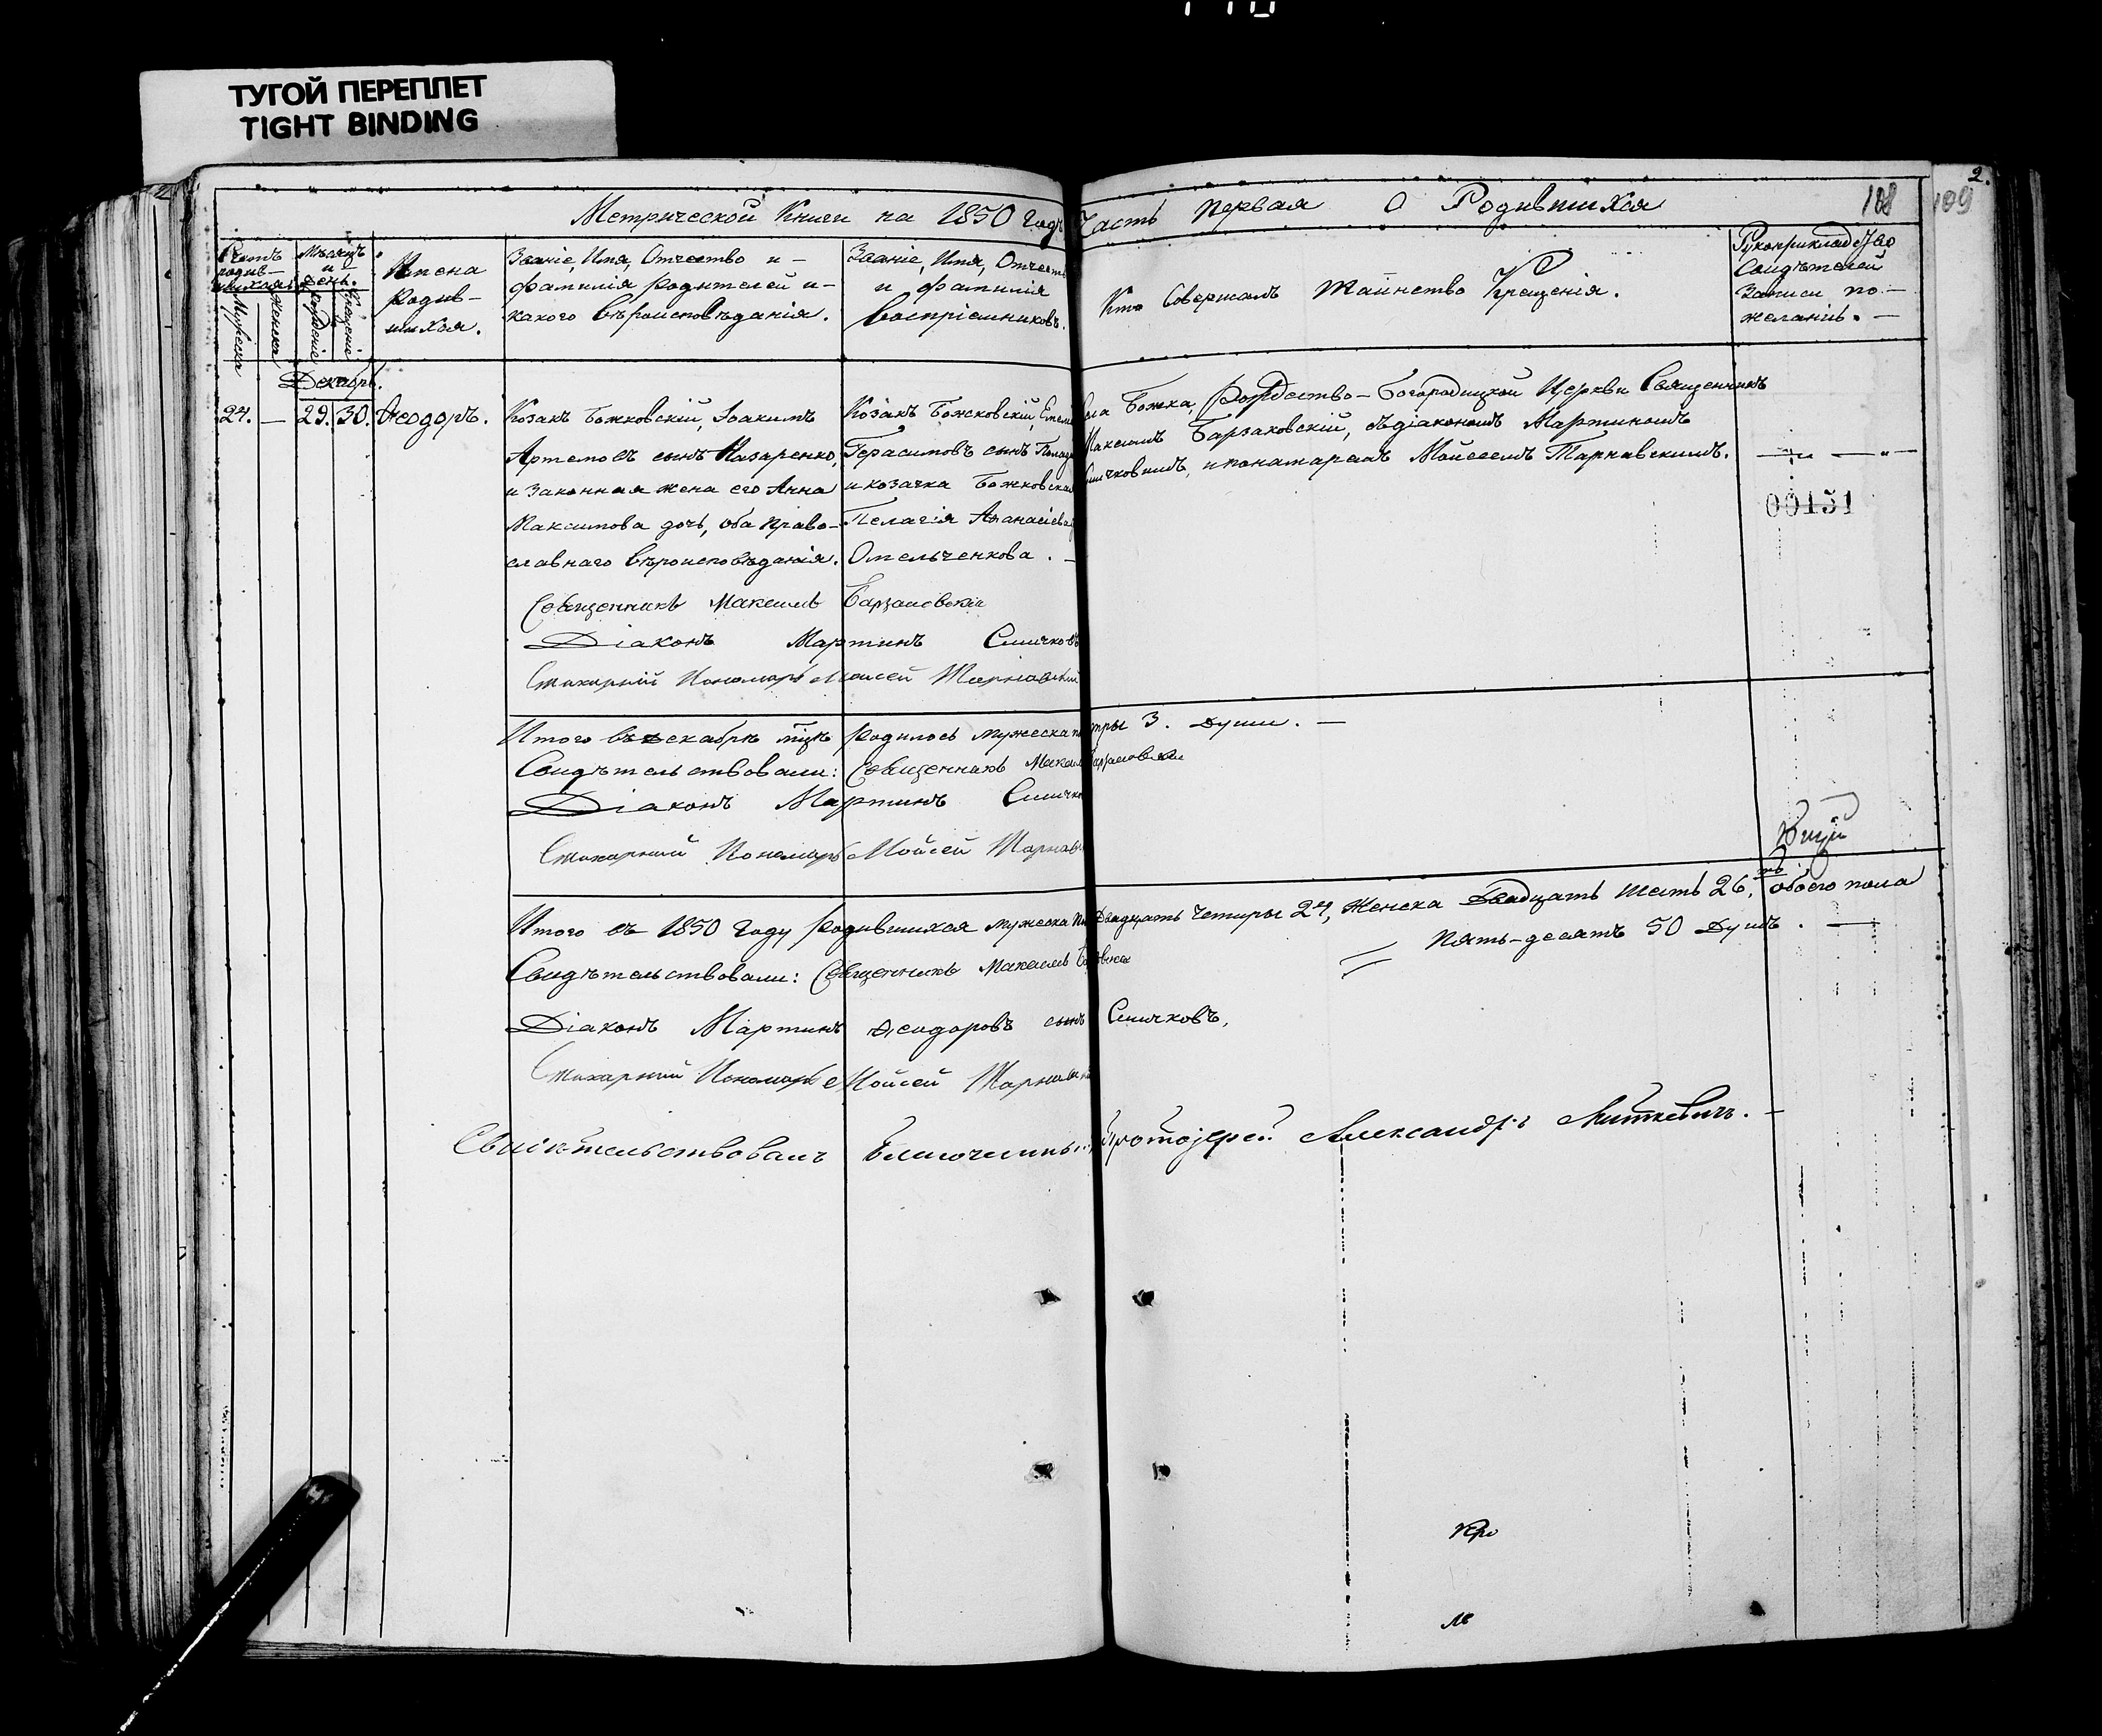 ТУГОЙ ПЕРЕПЛЕТ
TIGHT BINDING
2.
Метрической Книги на 1850 Годъ Часть первая О Родившихся
108 109
Счетъ родив-шихся
Мужеска
Женска
Мѣсяцъ и день.
Рожденіе
Крещеніе
Имена
Родив-
шихся.
Званіе, Имя, Отчество и-
фамилія родителей и-
какого вѣроисповѣданія.
Званіе, Имя, Отчест
и фамилія
воспріемниковъ.
Кто Совершалъ Таинство Крещенія.
Рукоприкладство
Свидѣтелей
Записи по-
желанію. -
Декабрь.
24. — 29. 30. Ѳеодоръ.
Козакъ Божковскій, Іоакимъ
Артемовъ сынъ Назаренко,
и законная жена его Анна
Максимова дочь, оба право-
славнаго вѣроисповѣданія.
Козакъ Божковскій,
Герасимовъ сынъ
и козачка Божковская
Пелагія Аѳанасіева
Омельченкова. -
Божка, Рождество-Богородицкой Церкви Священникъ
Максимъ Барзаковскій, съ діакономъ Мартиномъ
и понамаремъ Мойсеемъ Тарнавскимъ.
00151
Священникъ Максимъ
Діаконъ Мартинъ Симчковъ
Стихарній Пономарь Моисей Тарнавскій
Итого въ декабрѣ мцѣ родилось мужеска три 3. Души. —
Свидѣтельствовали: Священникъ Максимъ
Діаконъ Мартинъ
Стихарный Пономарь Мойсей
Итого въ 1850 Году родившихся мужеска Двадцать четыри 24, Женска Двадцать шесть 26, обоего пола
Пять-десятъ 50 Душъ. —
Свидѣтельствовали: Священникъ Максимъ
Діаконъ Мартинъ Ѳеодоровъ сынъ Симчковъ,
Стихарный Пономарь Мойсей
Свидѣтельствовалъ Благочинный Протоіерей Александръ Миткевичъ. -